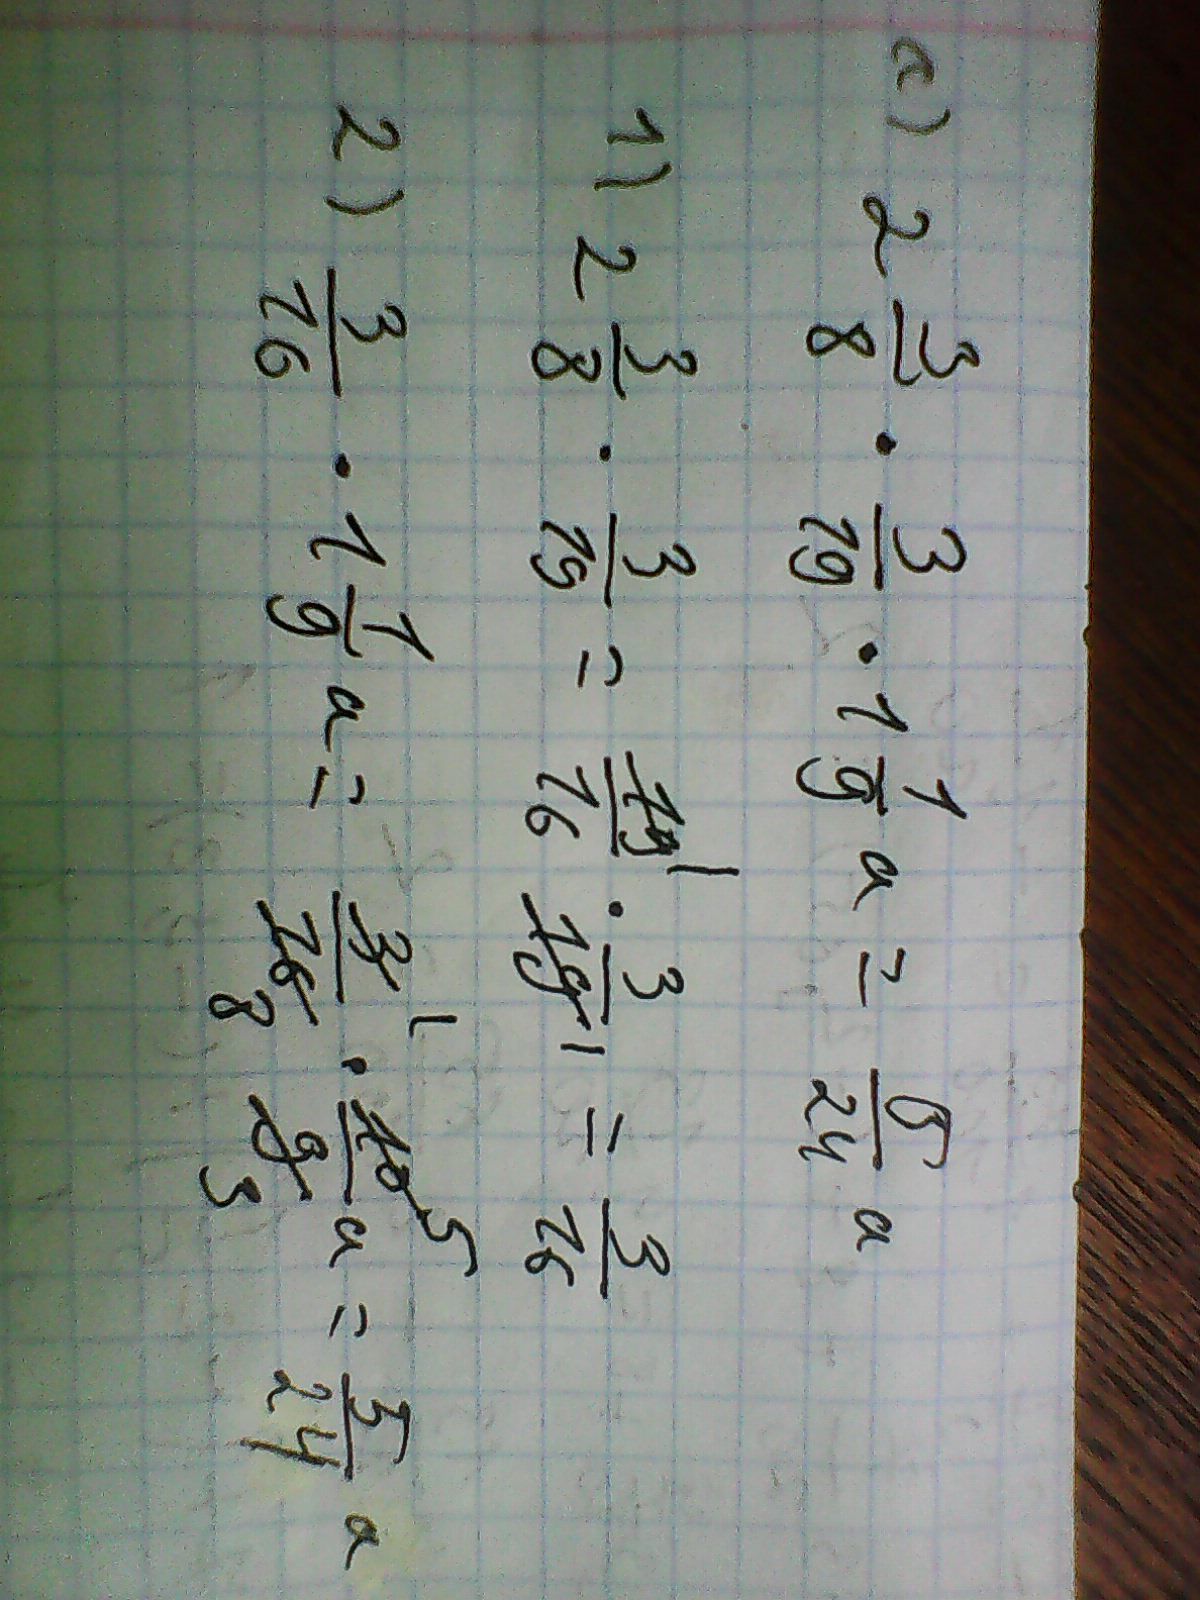 с) 2 3/8 · 3/19 · 1 1/9 a = 5/24 a
1) 2 3/8 · 3/19 = 19/16 1 · 3/19 1 = 3/16
2) 3/16 · 1 1/9 a = 3/16 1 8 · 10/9 5 3 a = 5/24 a